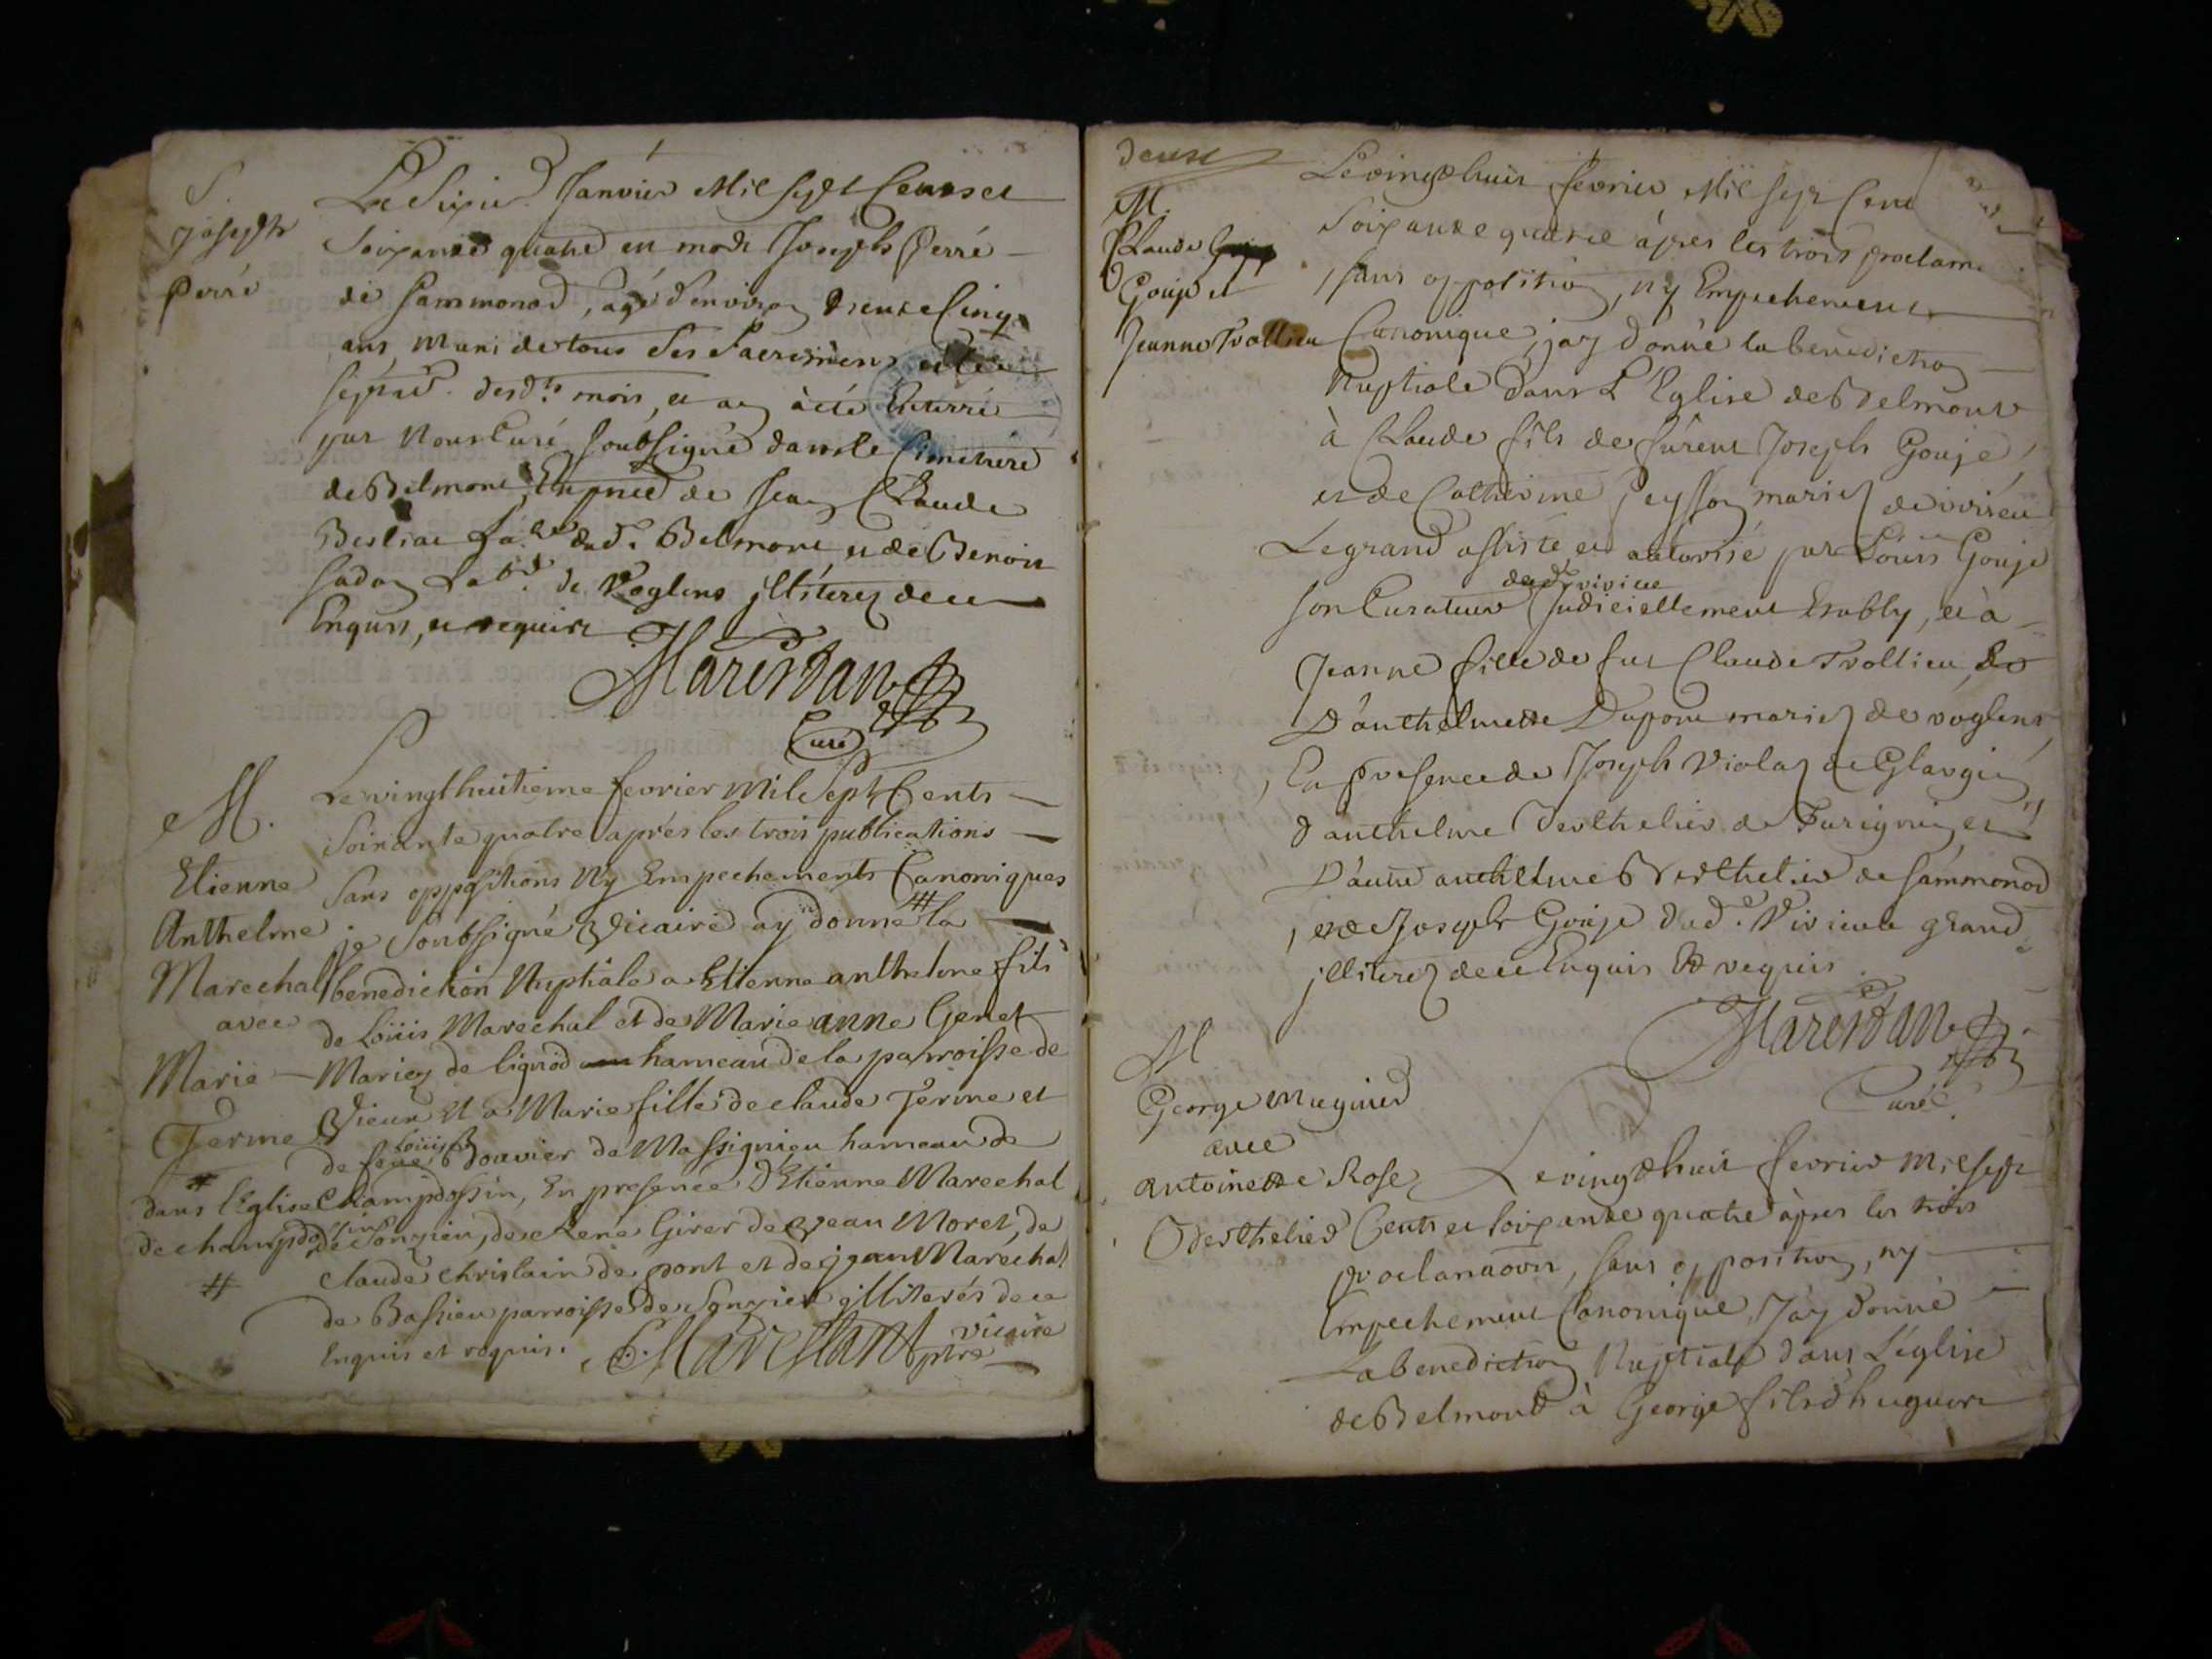 S.
joseph
Perré
Le Sixie. Janvier Mil sept Cents et
Soixante quatre est mort Joseph Perré
de Sammonod, agé d'environ trente Cinq
ans, muni de tous Ses Sacremens et le
sept.e desd.ts mois, et an à été Enterré
par Nous Curé soubsigné dans le Cimetiere
de Belmont, En pnce de Jean Claude
Bestiac Lab.r dud. Belmont et de Benoit
Lab.r de Voglens illiterez de ce
Enquis, et requis
Marestan
Curé
M.
Etienne
Anthelme
Marechal
avec
Marie
Ferme
Le vingt huitieme fevrier Mil Sept Cents
Soixante quatre aprés les trois publications
Sans oppositions Ny Empechements Canoniques
je Soubsigné Vicaire ay donné # la
benediction Nuptiale a Etienne anthelme fils
de Loüis Marechal et de Marie anne Genet
Mariez de lignod hameau de la parroisse de
Vieux et a Marie fille de claude Ferme et
de feue Louise Bouvier de Massignieu hameau de
Champdossin, En presence d'Etienne Marechal
de Songieu, de Rene Girer de Jean Moret, de
claude christain de pont et de jean Marechal
de Bassieu parroisse de Songieu illiterés de ce
Enquis et requis. Marestan vicaire
ptre
# dans l'Eglise
de champdossin
#
deux
M.
Claude
Gouje et
Jeanne Trollieu
Le vingt huit fevrier Mil sept Cent
Soixante quatre àpres les trois proclam
sans opposition, ny Empechement
Canonique, jay donné la benediction
Nuptiale dans L'Eglise de Belmont
à Claude fils de Joseph Gouje
et de Catherine Peysson mariez de virieu
Le grand assisté et autorisé par Loüis Gouje
dud. virieu
son Curateur Judiciellement Etably, et à
Jeanne fille de fut Claude Trollieu, et
D'anthelmette Dupont mariez de voglens
En presence de Joseph Violaz de
d'anthelme Berthelier de et
D'autre anthelme Berthelier de Sammonod
et de Joseph Gouje dud. Virieu le grand
illiterez de ce Enquis et requis
Marestan
Curé
M
George Mugnier
avec
Antoinette Rose
Berthelier
Le vingt huit fevrier mil sept
Cents et soixante quatre àpres les trois
proclamaons, sans opposition, ny
Empechement Canonique, J'ay donné
La benediction Nuptiale dans L'église
de Belmont à George fils d'